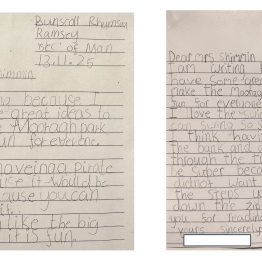 Bunscoill Rhumsaa
Ramsey
Isle of Man
13.11.25
shimmin
because I
great ideas to
Mooragh park
fun for everyone.
having a pirate
it would be
because you can
it.
like the big
it is fun.
Dear mrs shimmin
I am writing b
have some grea
make the Mooragh
fun for everyone
I love the swin
can swing
I think havin
the bank and
through the t
be super beca
didnot want
the steps
down the zip
you for reading
yours sincerely